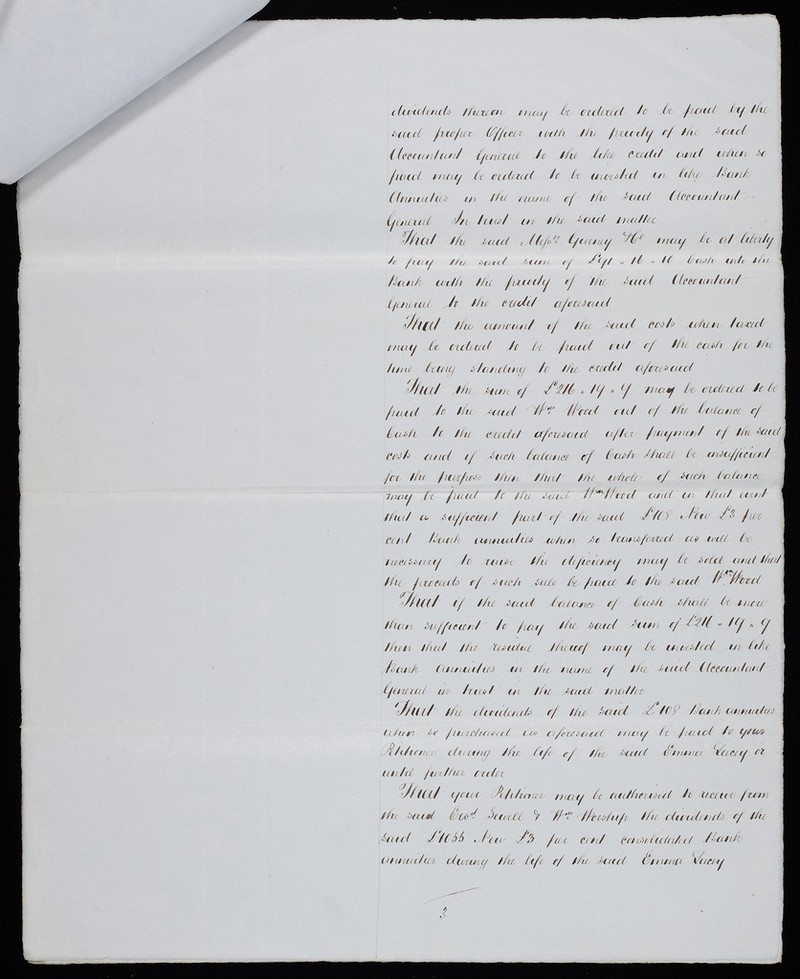 dividends thereon may be ordered to be paid by the
said proper Officer with the privity of the said
Accountant General to the like credit and when so
paid may be ordered to be invested in like Bank
Annuities in the name of the said Accountant
General In trust in the said matter
That the said Messrs Gurney &Co may be at liberty
to pay the said sum of Cash into the
Bank with the privity of the said Accountant
General to the credit aforesaid
That the amount of the said costs when taxed
may be ordered to be paid out of the cash for the
time being standing to the credit aforesaid
That the sum of £216 . 19 . 9 may be ordered to be
paid to the said Wm Wood out of the balance of
Cash to the credit aforesaid after payment of the said
costs and if such balance of Cash shall be insufficient
for the purpose then that the whole of such balance
may be paid to the said Wm Wood and in that event
that a sufficient part of the said £108 New £3 per
cent Bank annuities when so transferred as will be
necessary to raise the deficiency may be sold and that
the proceeds of such sale be paid to the said Wm Wood
That if the said balance of Cash shall be more
than sufficient to pay the said sum of £216 - 19 . 9
then that the residue thereof may be invested in like
Bank Annuities in the name of the said Accountant
General in trust in the said matter
That the dividends of the said £108 Bank annuities
when so purchased as aforesaid may be paid to your
Petitioner during the life of the said Emma Lacey or
until further order
That your Petitioner may be authorised to receive from
the said Sewell & Wm Worship the dividends of the
said £1055 New £3 per cent consolidated Bank
annuities during the life of the said Emma Lacey
3